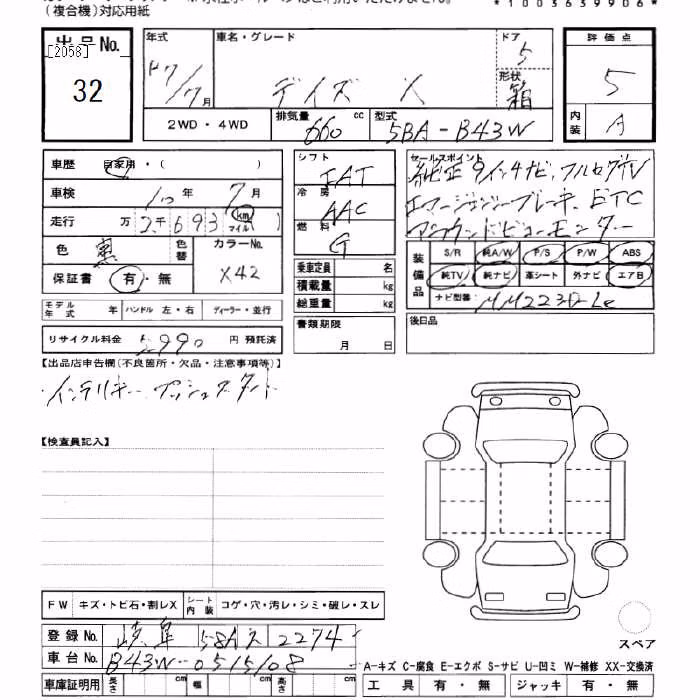 (複合機)対応用紙
*1003639906*
出品No. [2058] 32
年式 H7/7月
車名・グレード デイズ X
ドア 5
形状 箱
2WD・4WD
排気量 660 cc
型式 5BA-B43W
評価点 5
内装 A
車歴 自家用・( )
車検 10年 7月
走行 万 2千693 km マイル ( )
色 黒 色替 カラーNo. X42
保証書 有・無
モデル年式 年 ハンドル 左・右 ディーラー・並行
リサイクル料金 5990 円 預託済
シフト IAT
冷房 AAC
燃料 G
乗車定員 名
積載量 kg
総重量 kg
書類期限 月 日
セールスポイント
純正9インチナビ、フルセグTV
エマージェンシーブレーキ、ETC
アラウンドビューモニター
装備品 S/R 純A/W P/S P/W ABS
純TV 純ナビ 革シート 外ナビ エアB
ナビ型番 MM223D-Le
後日品
【出品店申告欄(不良箇所・欠品・注意事項等)】
・インテリキー、プッシュスタート
【検査員記入】
FW キズ・トビ石・割レX シート内装 コゲ・穴・汚レ・シミ・破レ・スレ
登録No. 岐阜 58A ス 2274
車台No. B43W-0515108
車庫証明用 長さ cm 幅 cm 高さ cm
スペア
A-キズ C-腐食 E-エクボ S-サビ U-凹ミ W-補修 XX-交換済
工具 有・無 ジャッキ 有・無